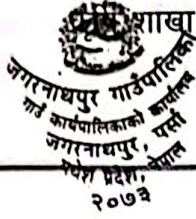 शाखा
जगरनाथपुर गाउँपालिका
गाउँ कार्यपालिकाको कार्यालय
जगरनाथपुर, पर्सा
मधेश प्रदेश, नेपाल
२०७३